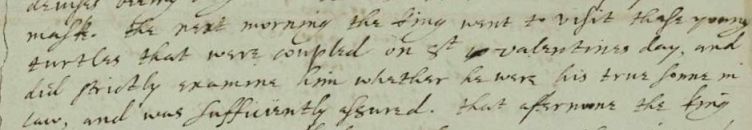 devises being
mask. the next morning the king went to visit these young
turtles that were coupled on St valentines day, and
did strictly examine him whether he were his true sonne in
law, and was sufficiently assured. that afternone the king